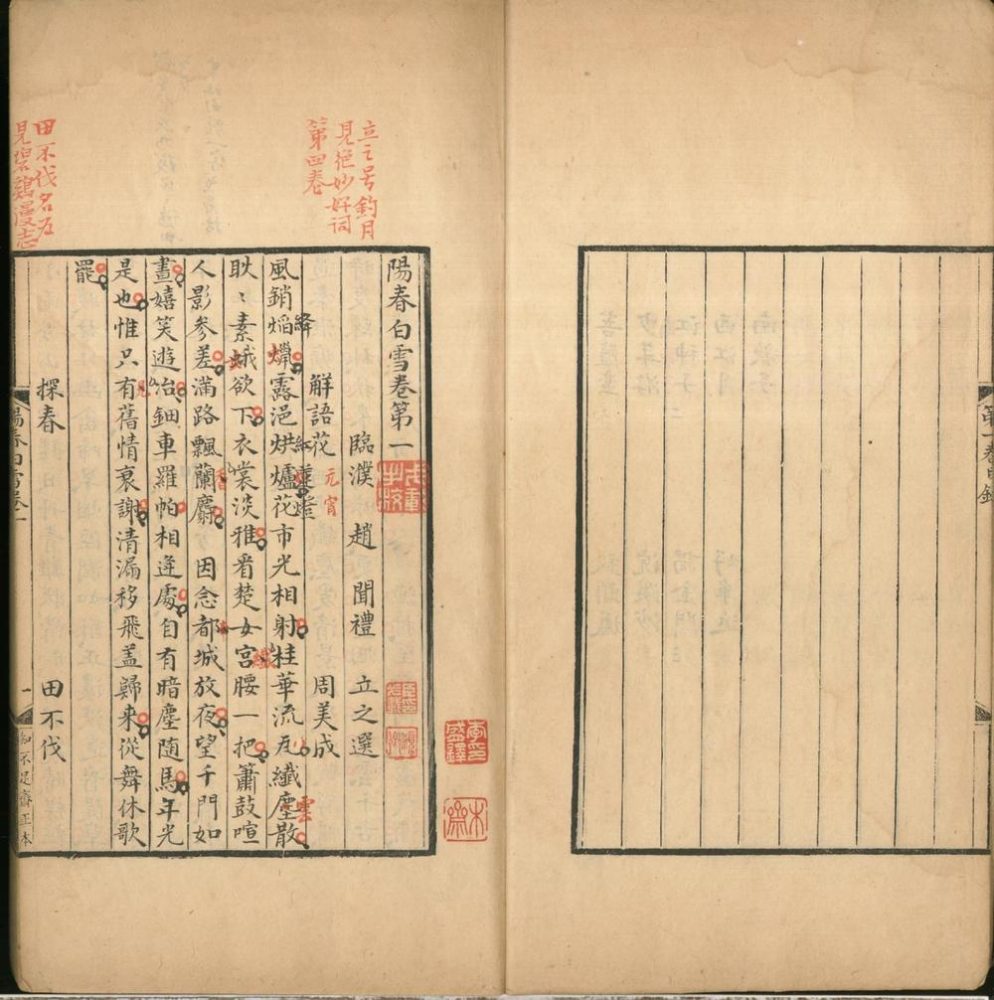 第一卷目錄
立之号釣月
見絕妙好詞
第四卷
陽春白雪卷第一
臨濮趙聞禮立之選
解語花 元宵 周美成
風銷焰蠟露浥烘爐花市光相射桂華流瓦纖塵散
絳 紅蓮燈
雲
耿〻素娥欲下衣裳淡雅看楚女宮腰一把簫鼓喧
纖
人影參差滿路飄蘭麝 因念都城放夜望千門如
香
晝嬉笑遊冶鈿車羅帕相逢處自有暗塵隨馬年光
是也惟只有舊情衰謝清漏移飛蓋歸來從舞休歌
見
罷
田不伐名
見碧雞漫志
探春 田不伐
陽春白雪卷一
一
知不足齋正本